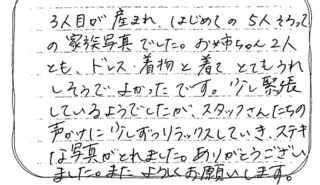 3人目が産まれ、はじめての5人そろって
の家族写真でした。お姉ちゃん2人
とも、ドレス・着物と着てとてもうれ
しそうでよかったです。少し緊張
しているようでしたが、スタッフさんたちの
声かけに少しずつリラックスしていき、ステキ
な写真がとれました。ありがとうござい
ました。また よろしくお願いします。